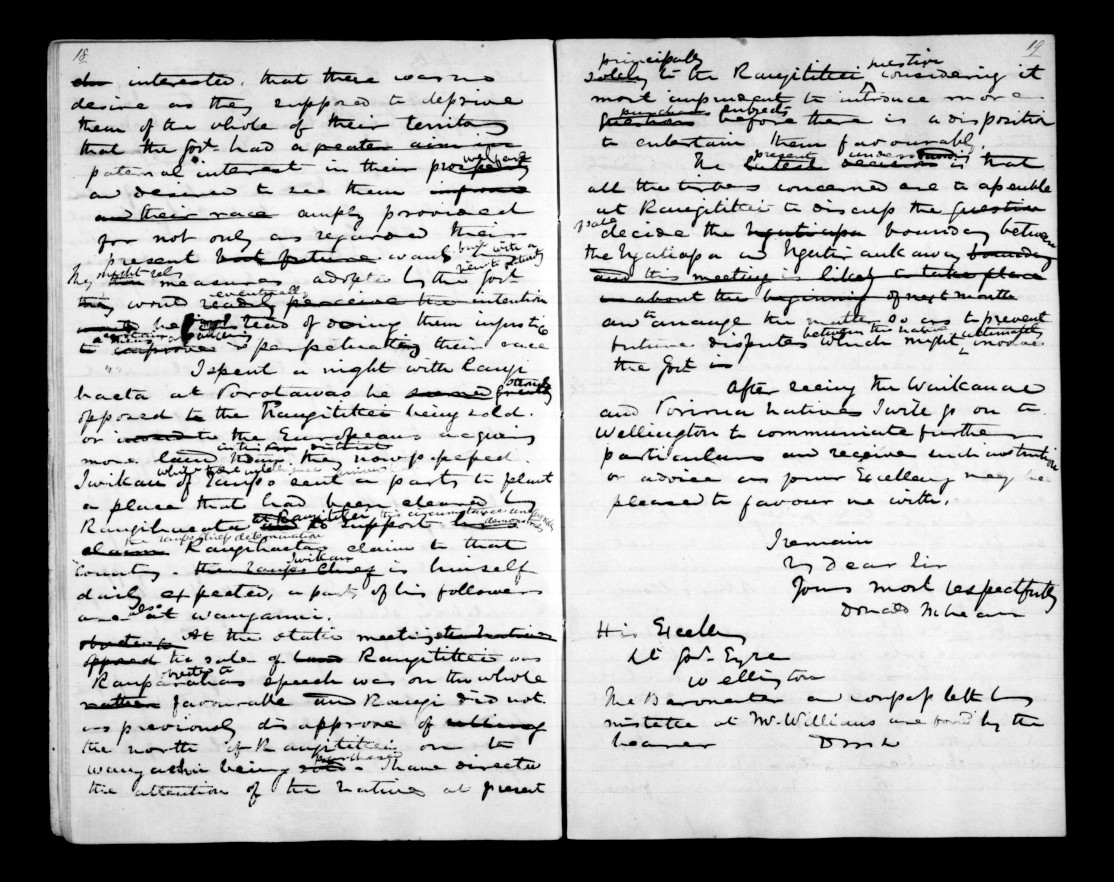 18
interested. that there was no
desire as they supposed to deprive
them of the whole of their territory
that the govt. had a greater aim in
paternal interest in their prosperity welfare
and desired to see them improve
and their race amply provided
for not only as regarded their
present but future wants but with a view to
They might rely measures adopted by the govt
they would eventually readily perceive the intention
instead of doing them injustice
to improve & perpetuating their race
I spent a night with Rangi
haeata at Porotawao he seemed greatly strongly
opposed to the Rangitikei being sold.
or to the Europeans acquiring
more land in this district than they now possessed.
Iwikau of Taupo sent a party to plant
a place that had been cleared by
Rangihaeata at Rangitikei to support
the Taupo chiefs determination
claim Rangihaeatas claim to that
country. the Taupo Chief Iwikau is himself
daily expected, a party of his followers
are at Wanganui.
At the Otaki meeting
opposed the sale of land Rangitikei was
Rauparahas speech was on the whole
rather favourable and Rangi did not
as previously disapprove of selling
the north of Rangitikei on to
Wangaehu being sold purchased. I have directed
the attention of the natives at present
19
principally
solely to the Rangitikei question considering it
most imprudent to introduce more
purchases subjects
questions before there is a disposition
to entertain them favourably.
present understanding
The latest decision is that
all the tribes concerned are to assemble
at Rangitikei to discuss the question
decide the Ngatiapa boundary between
the Ngatiapa and Ngatiraukawas boundary
and this meeting is likely to take place
in about the beginning of next month
and to arrange the matter so as to prevent
future disputes between the natives which might ultimately involve
the Govt in
After seeing the Waikanae
and Porirua natives I will go on to
Wellington to communicate further
particulars and receive such instructions
or advice as your Excellency may be
pleased to favour me with.
I remain
My Dear Sir
Yours most respectfully
Donald McLean
His Excellency
Lt Govr. Eyre
Wellington
The Barometer and compass left by
mistake at Mr Williams are ford by the
bearer DMcL